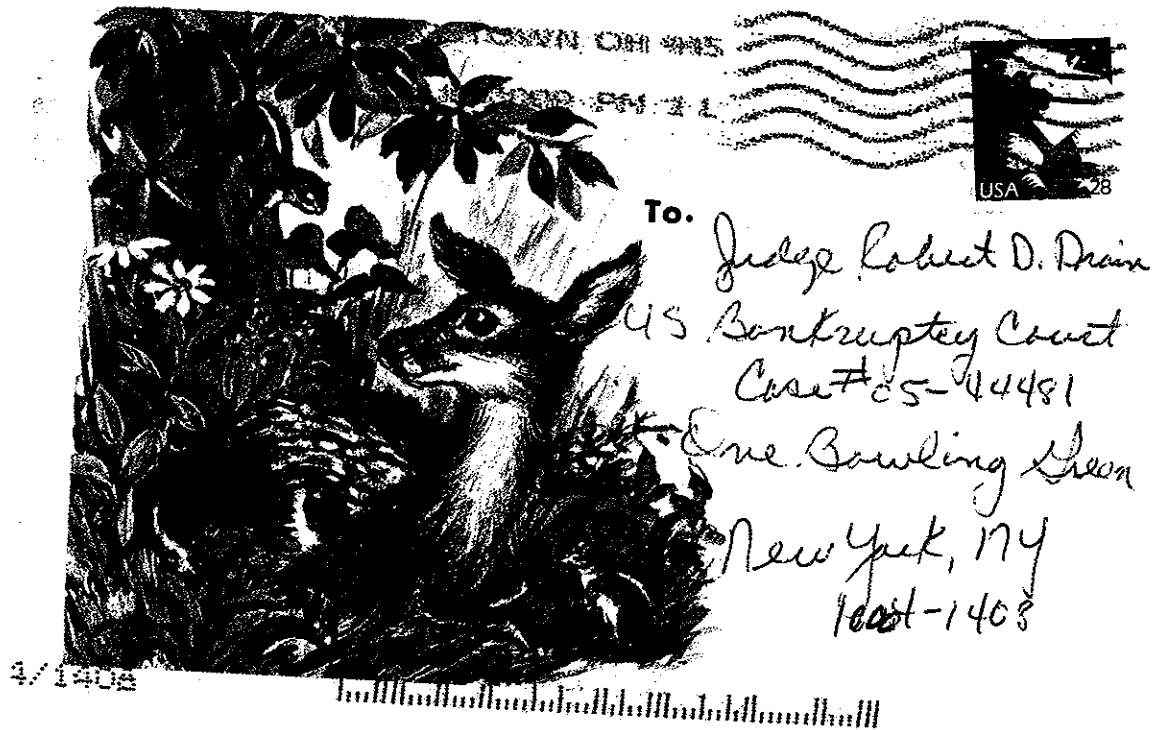 TOWN, OH 445
PM 1 L
USA 28
To.
Judge Robert D. Drain
US Bankruptcy Court
Case# 05-44481
One Bowling Green
New York, NY
-1408
4/1408